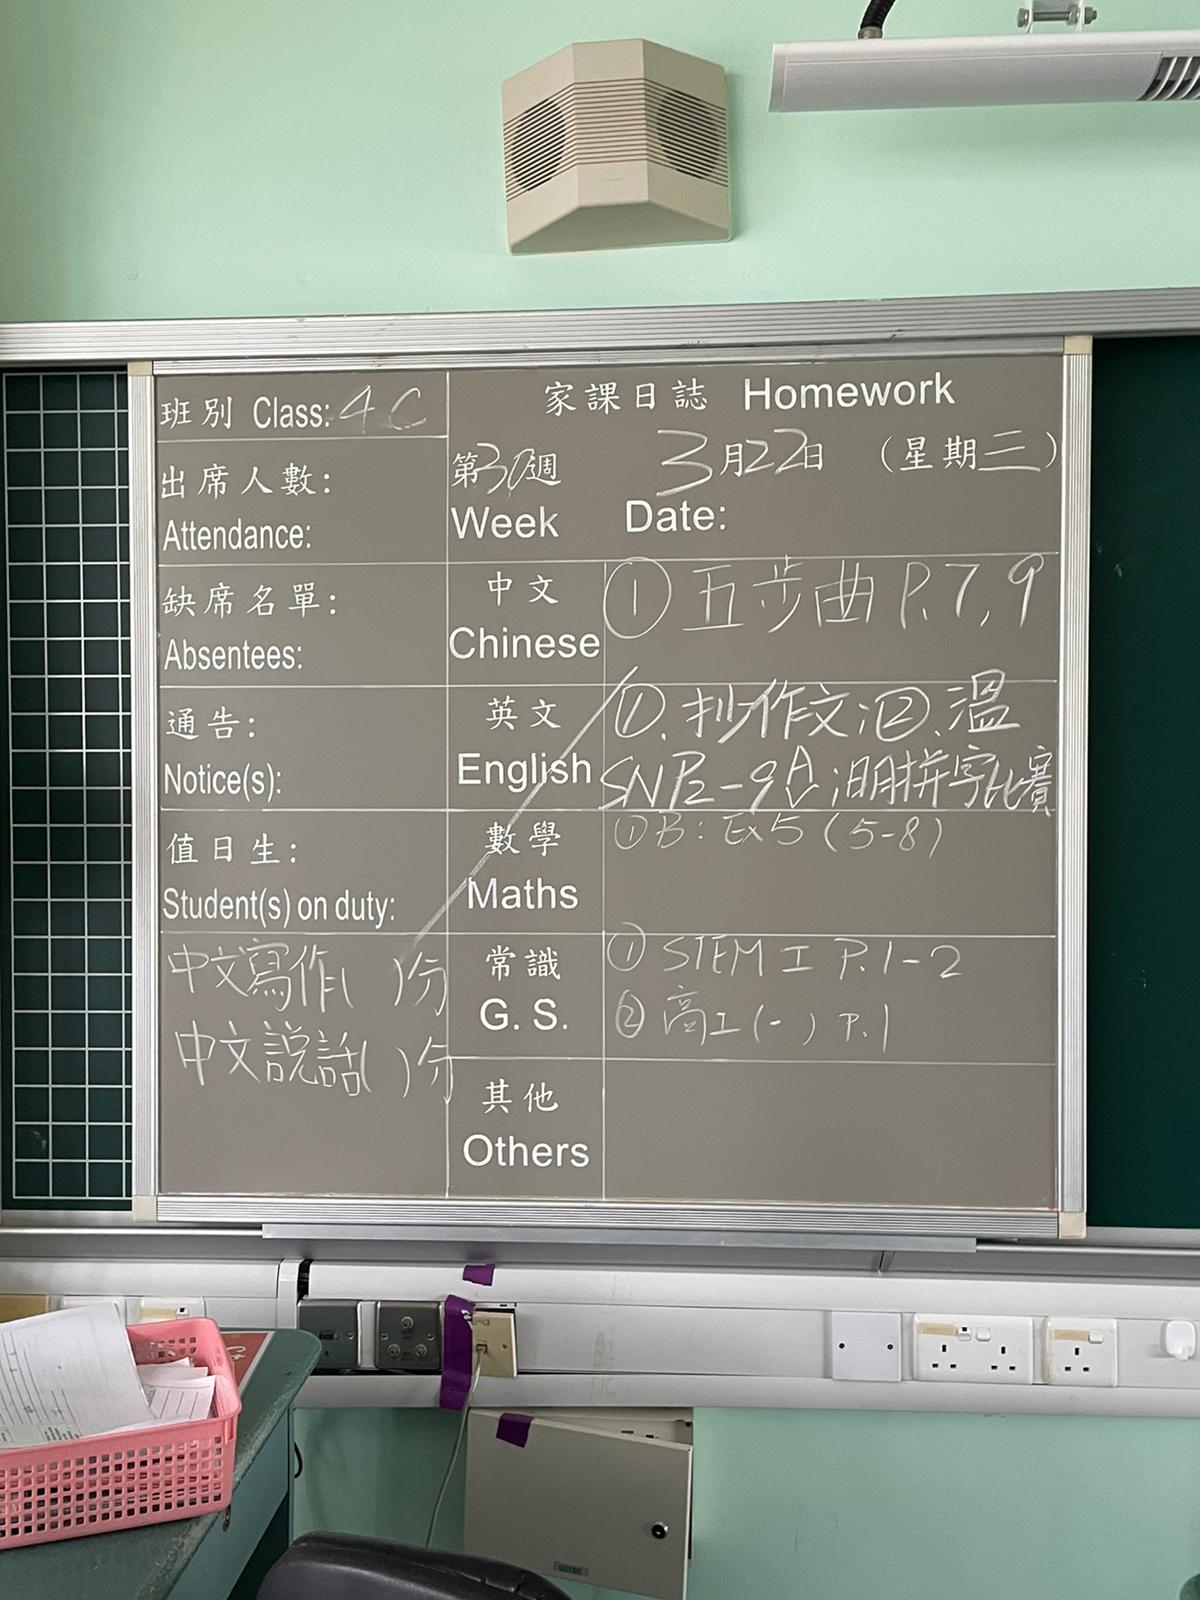 班別 Class: 4C
出席人數:
Attendance:
缺席名單:
Absentees:
通告:
Notice(s):
值日生:
Student(s) on duty:
中文寫作( )分
中文說話( )分
家課日誌 Homework
第30週 3月22日 (星期三)
Week Date:
中文
Chinese
① 五步曲 P.7,9
英文
English
①.抄作文;②.溫
SN P2-9
;明拼字比賽
數學
Maths
① B: Ex5 (5-8)
常識
G. S.
① STEM 工 P.1-2
② 高工(-) P.1
其他
Others